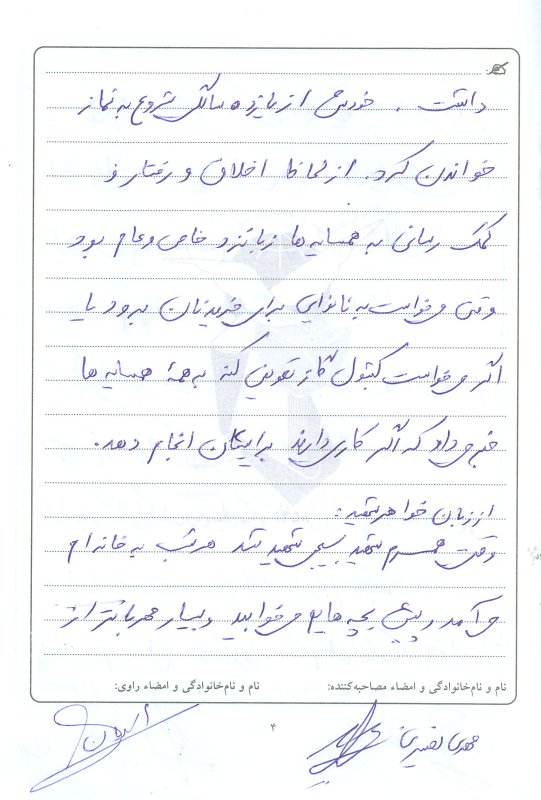 داشت. خودش از یازده سالگی شروع به نماز
خواندن کرد. از لحاظ اخلاق و رفتار و
کمک رسانی به همسایه‌ها زبانزد خاص و عام بود
وقتی می‌خواست به نانوایی برای خرید نان برود یا
اگر می‌خواست کپسول گاز تعویض کند به همهٔ همسایه ها
خبر می‌داد که اگر کاری دارند برایشان انجام دهد.
از زبان خواهر شهید:
وقتی همسرم شهید بسیجی شهید شد هر شب به خانه‌ام
می‌آمد و پیش بچه هایم می‌خوابید و بسیار مهربانتر از
نام و نام‌خانوادگی و امضاء مصاحبه‌کننده:
نام و نام‌خانوادگی و امضاء راوی:
۴